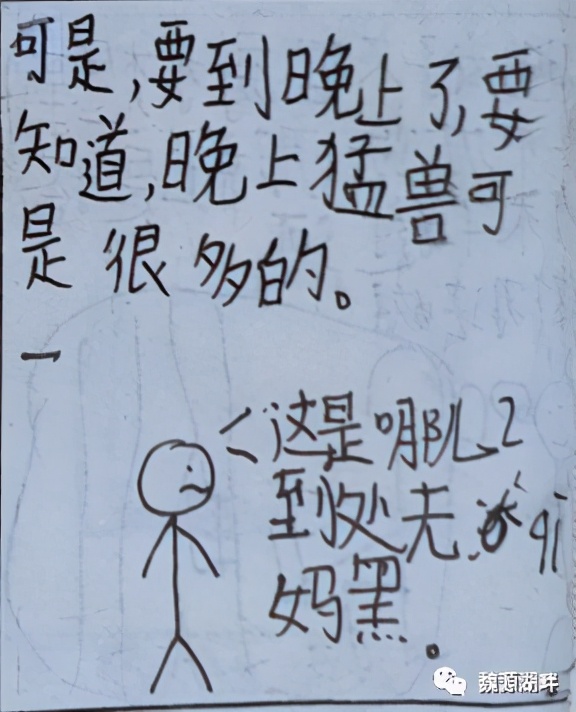 可是,要到晚上了,要
知道,晚上猛兽可
是很多的。
一
这是哪儿?
到处无 qi
妈黑。
魏源湖畔